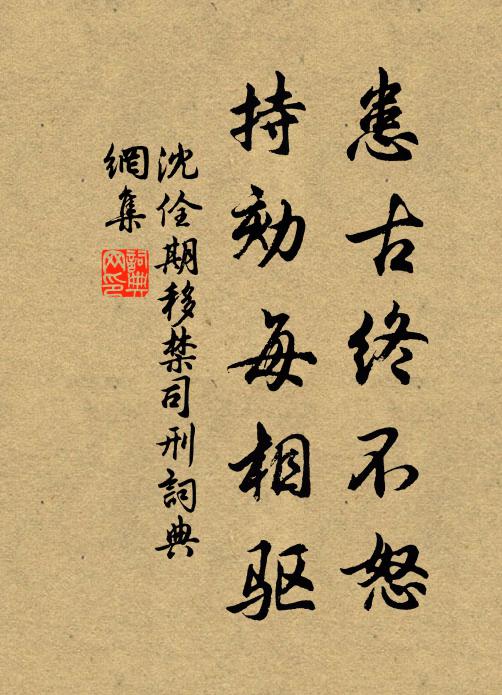 患古终不怒
持劾每相驱
沈佺期移禁司刑詞典
網集
詞典
网印